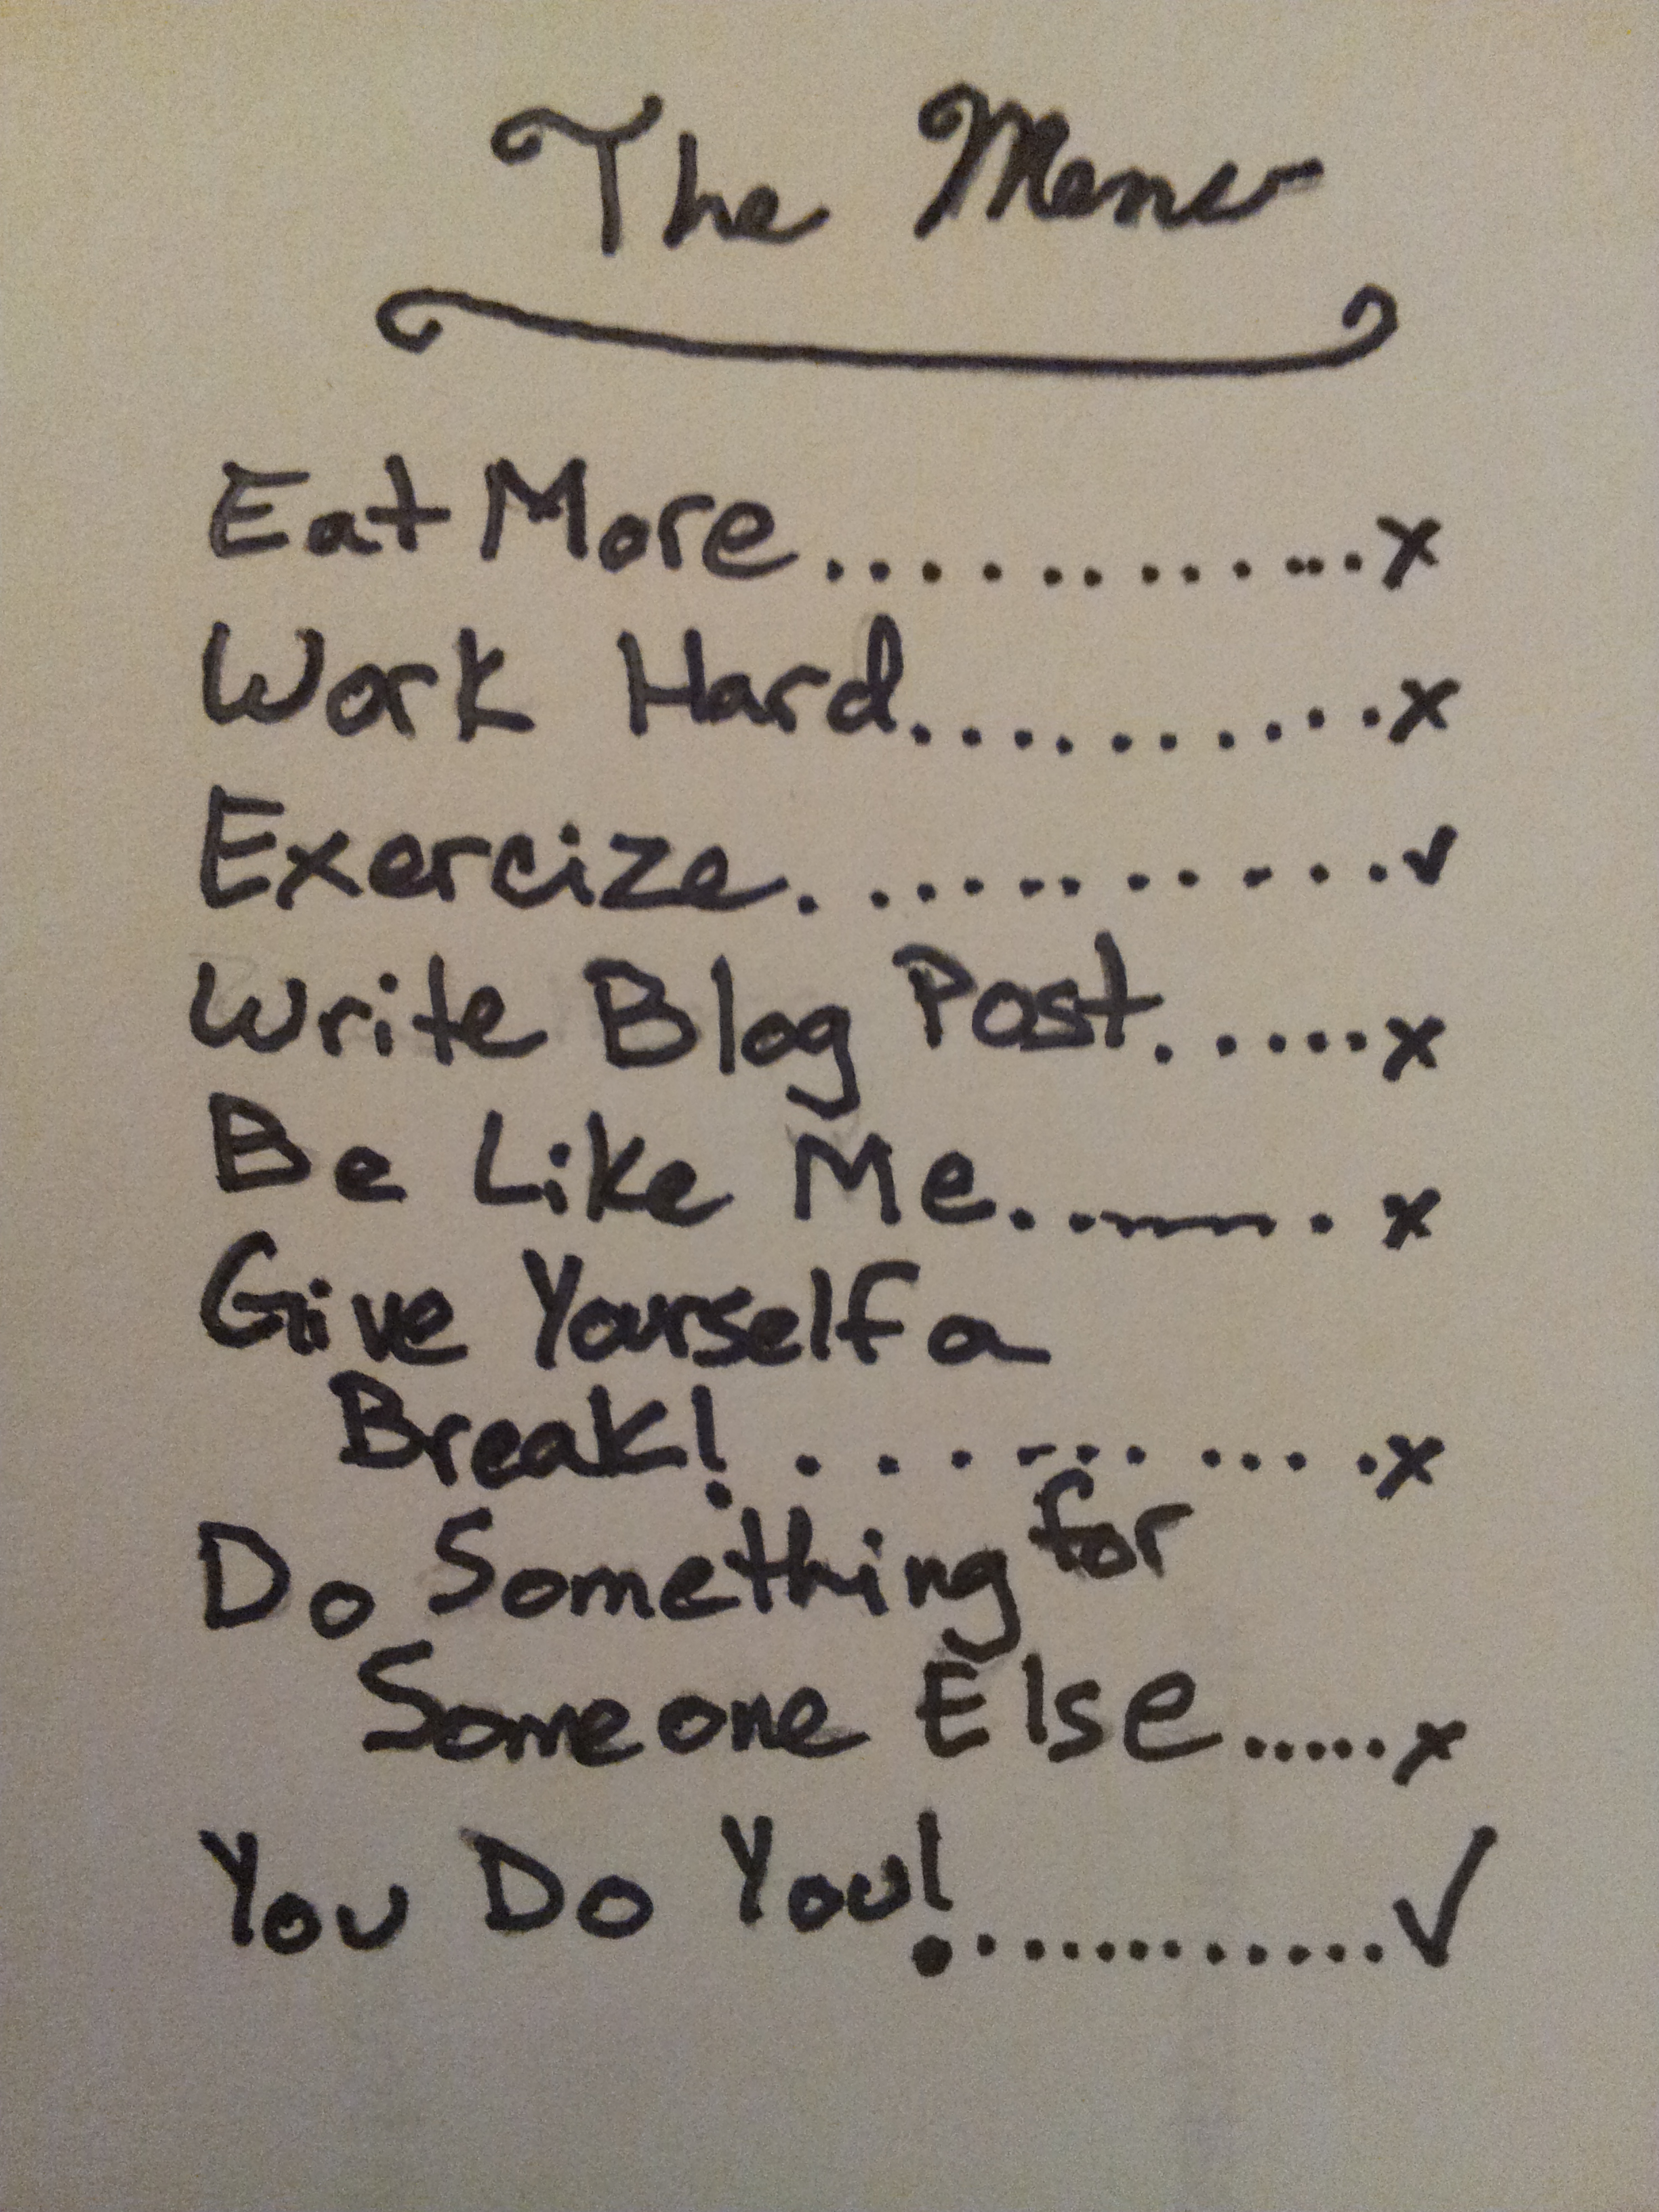 The Menu
Eat More..............x
Work Hard............x
Exercize.............✓
Write Blog Post......x
Be Like Me...........x
Give Yourself a
Break!.............x
Do Something for
Someone Else......x
You Do You!.............✓